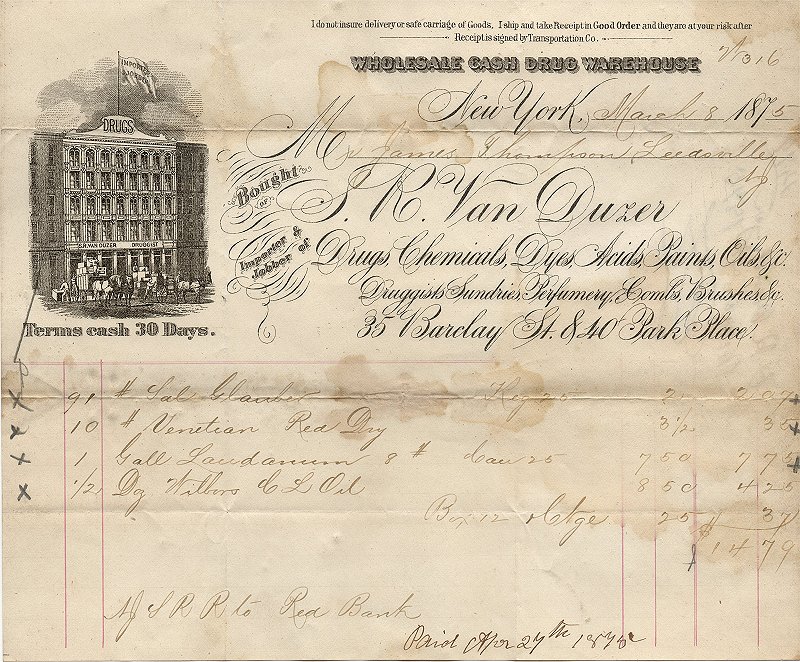 I do not insure delivery or safe carriage of Goods. I ship and take Receipt in Good Order and they are at your risk after
Receipt is signed by Transportation Co.
WHOLESALE CASH DRUG WAREHOUSE
316
New York, March 8 1875
Mr James Thompson Leedsville
NJ
Bought of
S. R. Van Duzer
Importer & Jobber of
Drugs, Chemicals, Dyes Acids, Paints, Oils &c.
Druggists Sundries, Perfumery, Combs, Brushes &c.
35 Barclay St. & 40 Park Place.
IMPORTER
JOBBER
DRUGS
S.R. VAN DUZER DRUGGIST
Terms cash 30 Days.
91 # Sal Glauber Keg 25 2 2 07
10 # Venetian Red Dry 3 1/2 35
1 Gall Laudanum 8 # Can 25 7 50 7 75
1/2 Dz Wilbors C L Oil 8 50 4 25
Box 12 & Ctge 25 37
$14 79
NJ S R R to Red Bank
Paid Apr 27th 1875